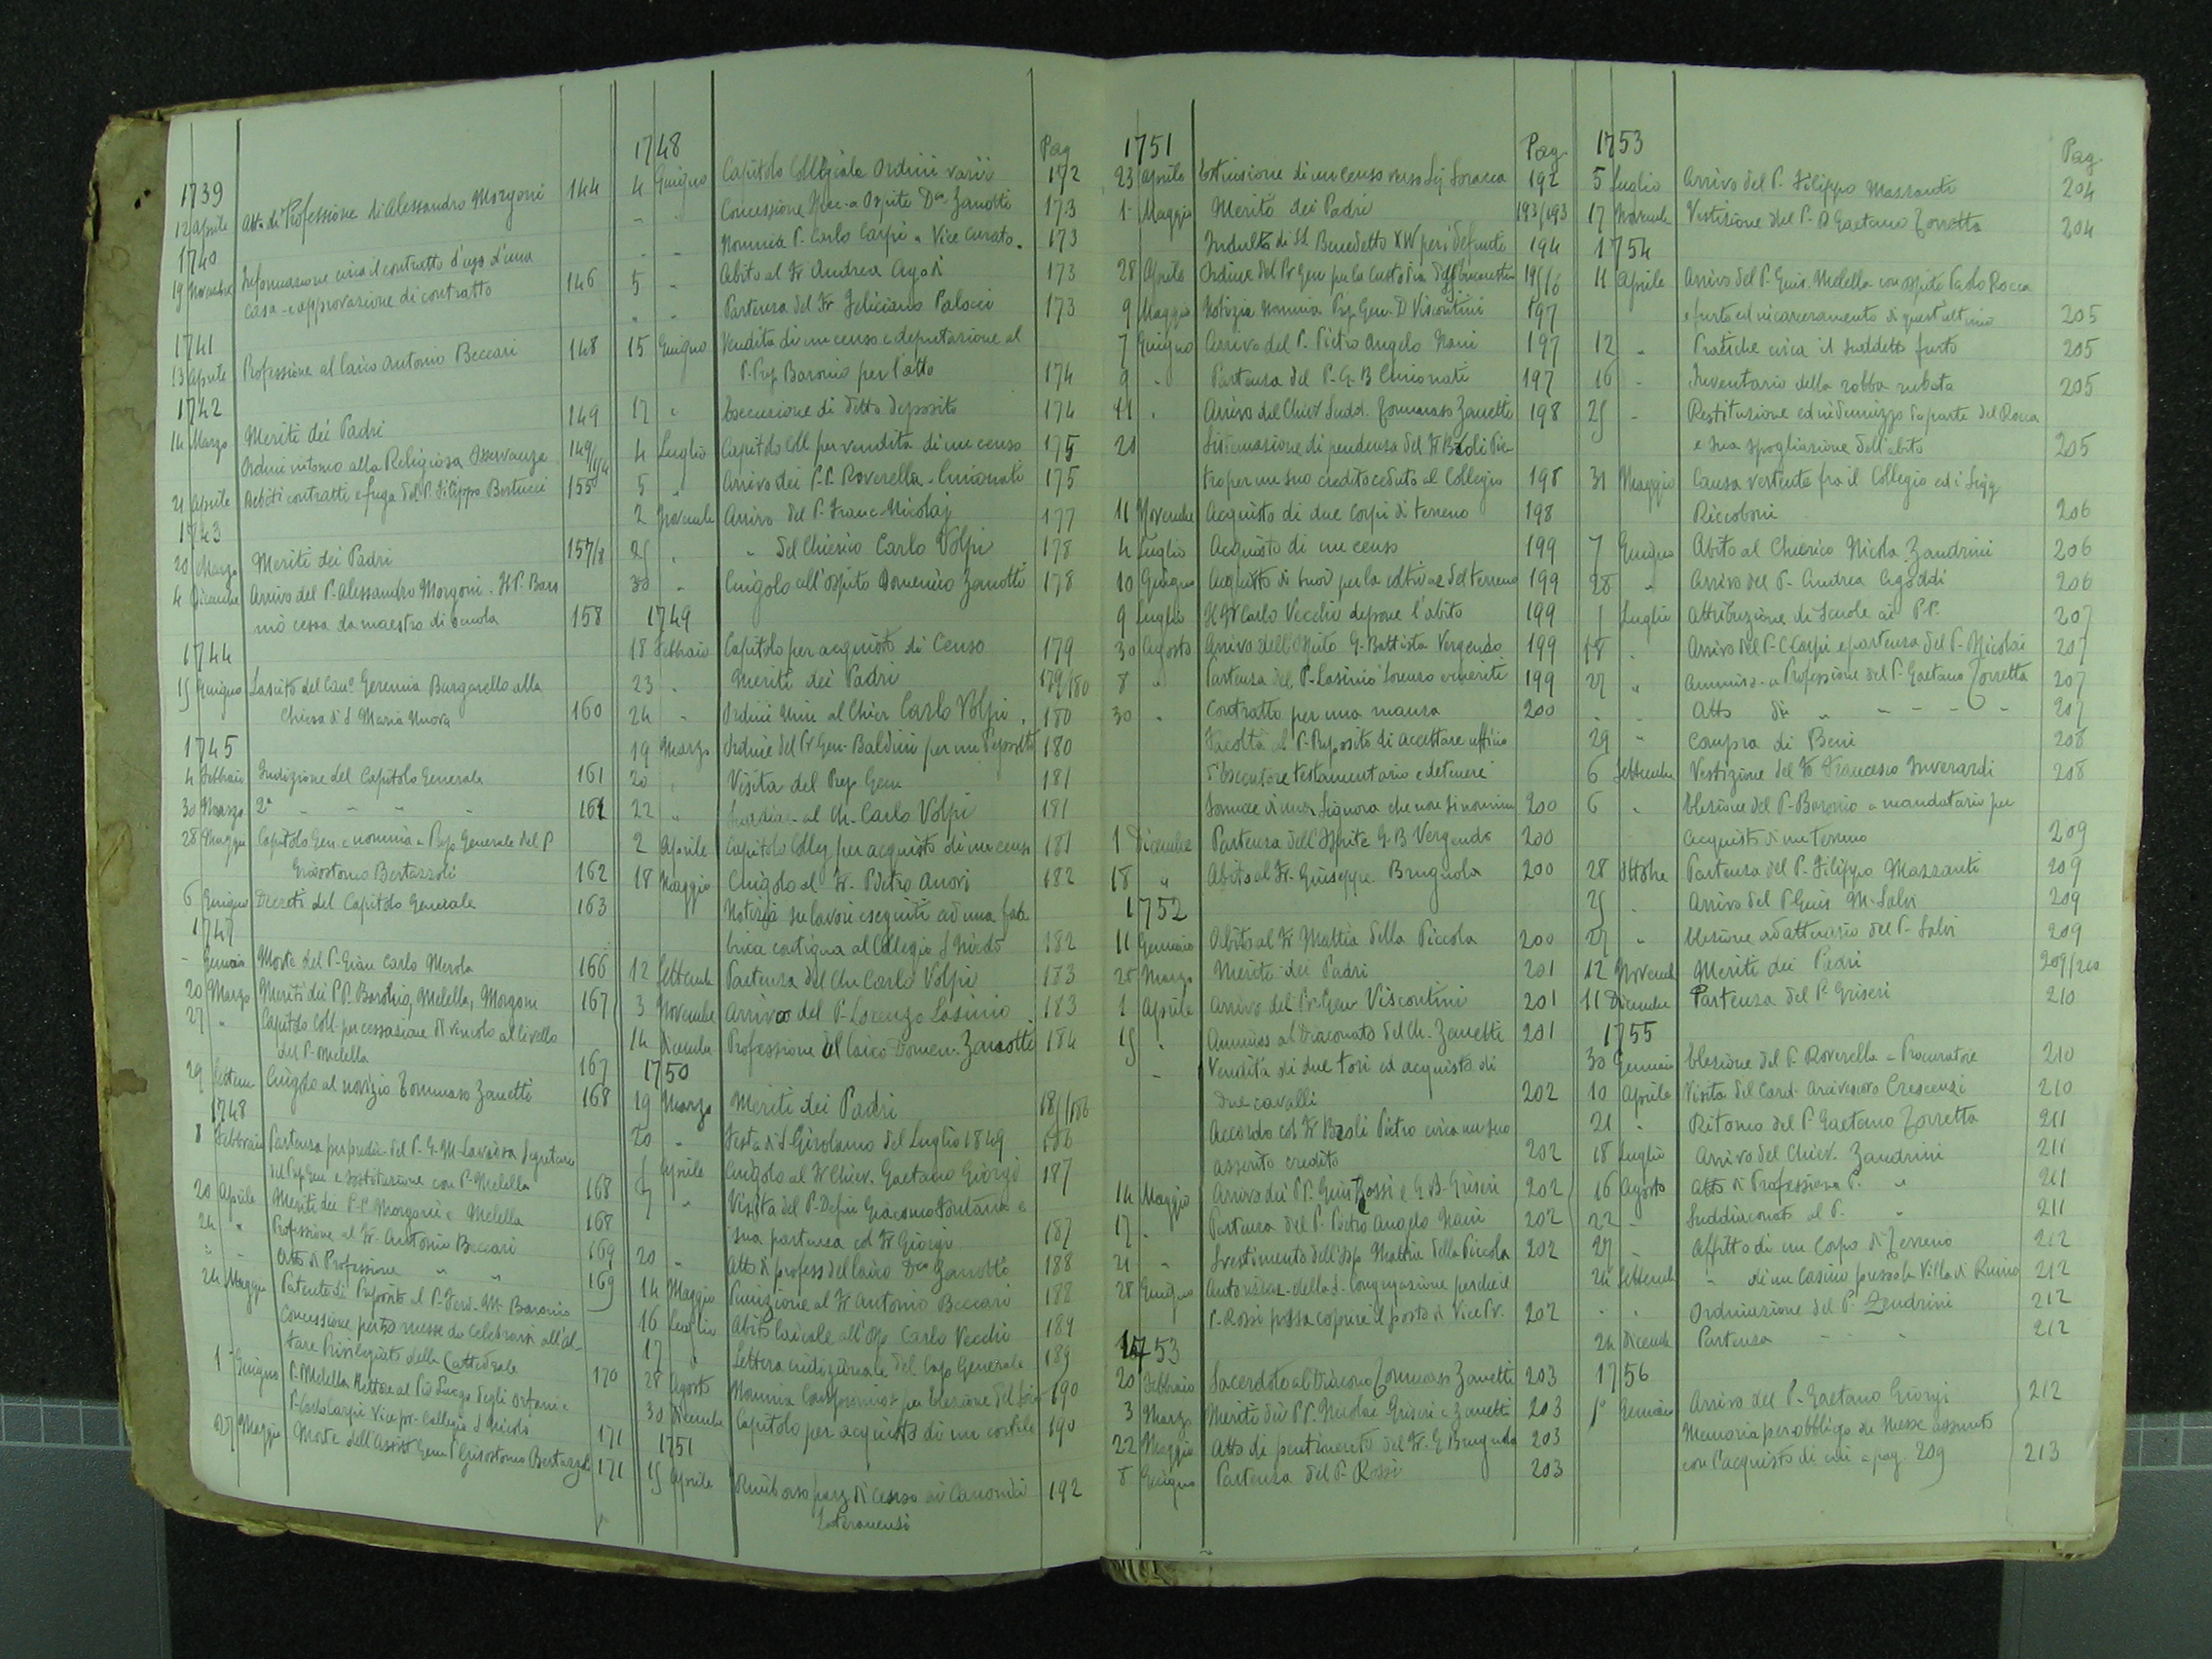 1739
12 Aprile Atto di Professione di Alessandro Morgoni 144
1740
19 Novembre Informazione circa il contratto d'uso d'una
casa - e approvazione di contratto 146
1741
13 Aprile Professione al laico Antonio Beccari 148
1742
14 Marzo Meriti dei Padri 149
Ordini intorno alla Religiosa Osservanza 149
21 Aprile Debiti contratti e fuga del P. Filippo Bertucci 155
1743
20 Marzo Meriti dei Padri 157/8
4 Dicembre Arrivo del P. Alessandro Morgoni. Il P. Baro
nio cessa da maestro di scuola 158
1744
15 Giugno Lascito del Can.º Geremia Bungarello alla
Chiesa di S. Maria Nuova 160
1745
4 Febbraio Indizione del Capitolo Generale 161
30 Marzo 2ª " " " 161
28 Maggio Capitolo Gen. e nomina a Prep. Generale del P.
Grisostomo Bertazzoli 162
6 Giugno Decreti del Capitolo Generale 163
1747
- Gennaio Morte del P. Gian Carlo Merola 166
20 Marzo Meriti dei PP. Baronio, Melella, Morgoni 167
27 " Capitolo Coll. per cessazione di vincolo al livello
del P. Melella 167
29 Settem Cingolo al novizio Tommaso Zanetti 168
1748
8 Febbraio Partenza per predic. del P. G. M. Lavaissa Segretario
del Prep. Gen. e sostituzione con P. Melella 168
20 Aprile Meriti dei P.P. Morgoni e Melella 168
24 " Professione al Fr. Antonio Beccari 169
" " Atto di Professione " " 169
24 Maggio Patente di Preposito al P. Ferd. M. Baronio
Concessione per 50 messe da celebrarsi all'al-
tare Privilegiato della Cattedrale 170
1º Giugno P. Melella Rettore al Pio Luogo degli Orfani e
P. Carlo Carpi Vice pr. Collegio S. Nicolò 171
27 Maggio Morte dell'Assist Gen. P. Grisostomo Bertazzoli 171
1748 Pag
4 Giugno Capitolo Collegiale Ordini varii 172
- " Concessione a Ospite Dco Zanotti 173
- " Nomina P. Carlo Carpi a Vice Curato. 173
5 " Abito al Fr. Andrea Agodi 173
" " Partenza del Fr. Feliciano Palocci 173
15 Giugno Vendita di un censo e deputazione al
P. Prep. Baronio per l'atto 174
17 " Esecuzione di detto deposito 174
4 Luglio Capitolo Coll per vendita di un censo 175
5 " Arrivo dei P.P. Roverella - Cnionati 175
2 Novembre Arrivo del P. Franc. Nicolaj 177
25 " " del Chierico Carlo Volpi 178
30 " Cingolo all'ospite Domenico Zanotti 178
1749
18 Febbraio Capitolo per acquisto di Censo 179
23 " Meriti dei Padri 179/180
24 " Ordini Min. al Chier. Carlo Volpi 180
19 Marzo Ordine del Pr Gen. Baldini per un deposito 180
20 " Visita del Prep. Gen 181
22 " al Ch. Carlo Volpi 181
2 Aprile Capitolo Colleg per acquisto di un censo 181
18 Maggio Cingolo al Fr. Pietro Anori 182
Notizia su lavori eseguiti ad una fab
brica contigua al Collegio S Nicolò 182
12 Settemb Partenza del Chr Carlo Volpi 183
3 Novembre Arrivo del P. Lorenzo Lasinio 183
14 Dicembre Professione al laico Domen. Zanotti 184
1750
19 Marzo Meriti dei Padri 185/186
20 " Festa di S Girolamo del Luglio 1849 186
5 Aprile Cingolo al Fr Chier. Gaetano Giorgi 187
7 " Visita del P. Defin Giacomo Fontana e
sua partenza col Fr Giorgi 187
20 " Atto di profess del laico Dco Zanotti 188
14 Maggio Punizione al Fr Antonio Beccari 188
16 Luglio Abito laicale all'Osp. Carlo Vecchi 189
17 " Lettera indizionale del Cap Generale 189
28 Agosto Nomina Compromiss. per elezione del Socio 190
30 Dicembre Capitolo per acquisto di un cortile 190
1751
15 Aprile Rimborso parz di censo ai Canonici 192
Lateranensi
1751 Pag.
23 Aprile Estinzione di un censo verso Sig Soracca 192
1º Maggio Merito dei Padri 193/193
Indulto di SS. Benedetto XIV per i defunti 194
28 Aprile Ordine del Pr Gen per la Custodia dell'Eucaristia 195/6
9 Maggio Notizia nomina Prep. Gen. D Viscontini 197
7 Giugno Arrivo del P. Pietro Angelo Nani 197
9 " Partenza del P. G. B Cnionati 197
11 " Arrivo del Chier Sudd. Tommaso Zanetti 198
20 Sistemazione di pendenza del Fr Bzoli Pie-
tro per un suo credito ceduto al Collegio 198
11 Novembre Acquisto di due corpi di terreno 198
4 Luglio Acquisto di un censo 199
10 Giugno Acquisto di buoi per la coltivaz del terreno 199
9 Luglio Il Fr Carlo Vecchi depone l'abito 199
30 Agosto Arrivo dell'Ospite G. Battista Vergendo 199
8 " Partenza del P. Lasinio Lorenzo e meriti 199
30 " Contratto per una manza 200
Facoltà al P. Preposito di accettare ufficio
d'Esecutore testamentario e detenere
somme di una Signora che non si nomina 200
1 Dicembre Partenza dell'Ospite G. B. Vergendo 200
18 " Abito al Fr. Giuseppe Brugnola 200
1752
11 Gennaio Abito al Fr Mattia della Piccola 200
25 Marzo Meriti dei Padri 201
1 Aprile Arrivo del Pr. Gen Viscontini 201
15 " Ammiss al Diaconato del Ch. Zanetti 201
- Vendita di due tori ed acquisto di
due cavalli 202
Accordo col Fr Bzoli Pietro circa un suo
asserito credito 202
14 Maggio Arrivo dei P.P. Gius Rossi e G. B. Griseri 202
17 " Partenza del P. Pietro Angelo Nani 202
21 " Svestimento dell'Osp Mattia della Piccola 202
28 Giugno Autorizzaz. della S. Congregazione perchè il
P. Rossi possa coprire il posto di Vice Pr. 202
1753
20 Febbraio Sacerdote al Diacono Tommaso Zanetti 203
3 Marzo Meriti dei P.P. Nicolai Griseri e Zanetti 203
22 Maggio Atto di pentimento del Fr. G Brugnola 203
8 Giugno Partenza del P. Rossi 203
1753 Pag.
5 Luglio Arrivo del P. Filippo Mazzanti 204
17 Novemb Vestizione del P. D Gaetano Torretta 204
1754
11 Aprile Arrivo del P. Gius. Melella con ospite Paolo Rocca
e furto ed incarceramento di quest'ultimo 205
12 " Pratiche circa il suddetto furto 205
16 " Inventario della robba rubata 205
25 " Restituzione ed indennizzo da parte del Rocca
e sua spogliazione dell'abito 205
31 Maggio Causa vertente fra il Collegio ed i Sigg
Riccoboni 206
7 Giugno Abito al Chierico Nicola Zandrini 206
28 " Arrivo del P. Andrea Agoddi 206
1 Luglio Attribuzione di Scuole ai P.P. 207
18 " Arrivo del P. C Carpi e partenza del P. Nicolai 207
27 " Ammiss. a Professione del P. Gaetano Torretta 207
" " Atto di " " " " 207
29 " Compra di Beni 208
6 Settembre Vestizione del Fr Francesco Inverardi 208
6 " Elezione del P. Baronio a mandatario per
acquisto di un terreno 209
28 Ottobre Partenza del P. Filippo Mazzanti 209
25 " Arrivo del P. Gius M. Salvi 209
27 " Elezione ad attuario del P. Salvi 209
12 Novemb Meriti dei Padri 209/210
11 Dicembre Partenza del P. Griseri 210
1755
30 Gennaio Elezione del P. Roverella a Procuratore 210
10 Aprile Visita del Card. Arcivescovo Crescenzi 210
21 " Ritorno del P. Gaetano Torretta 211
18 Luglio Arrivo del Chier. Zandrini 211
16 Agosto Atto di Professione P. " 211
22 " Suddiaconato al P. " 211
27 " Affitto di un Corpo di Terreno 212
24 Settemb " di un Casino presso la Villa di Ruina 212
" " Ordinazione del P. Zendrini 212
24 Dicemb Partenza " " 212
1756
1º Gennaio Arrivo del P. Gaetano Giorgi 212
Memoria per obbligo di Messe assunto
con l'acquisto di cui a pag. 209 213